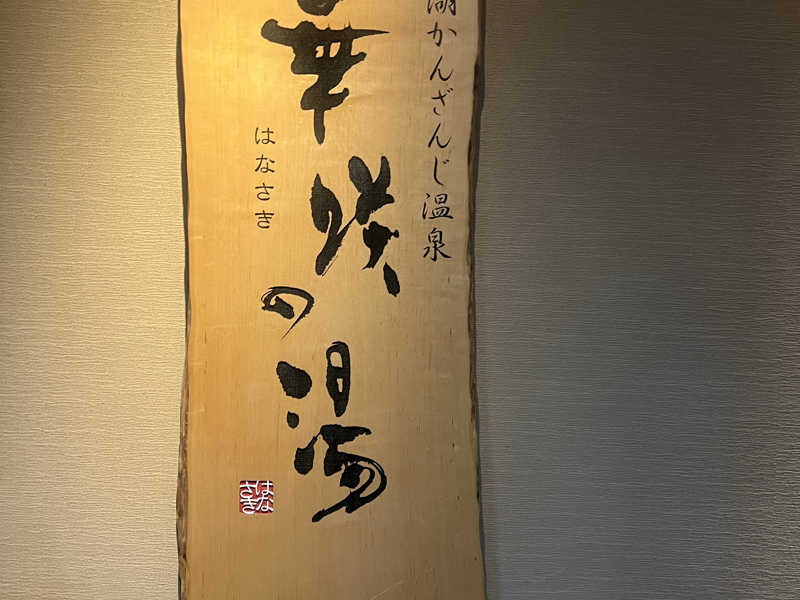 湖かんざんじ温泉
華咲の湯
はなさき
はな
さき